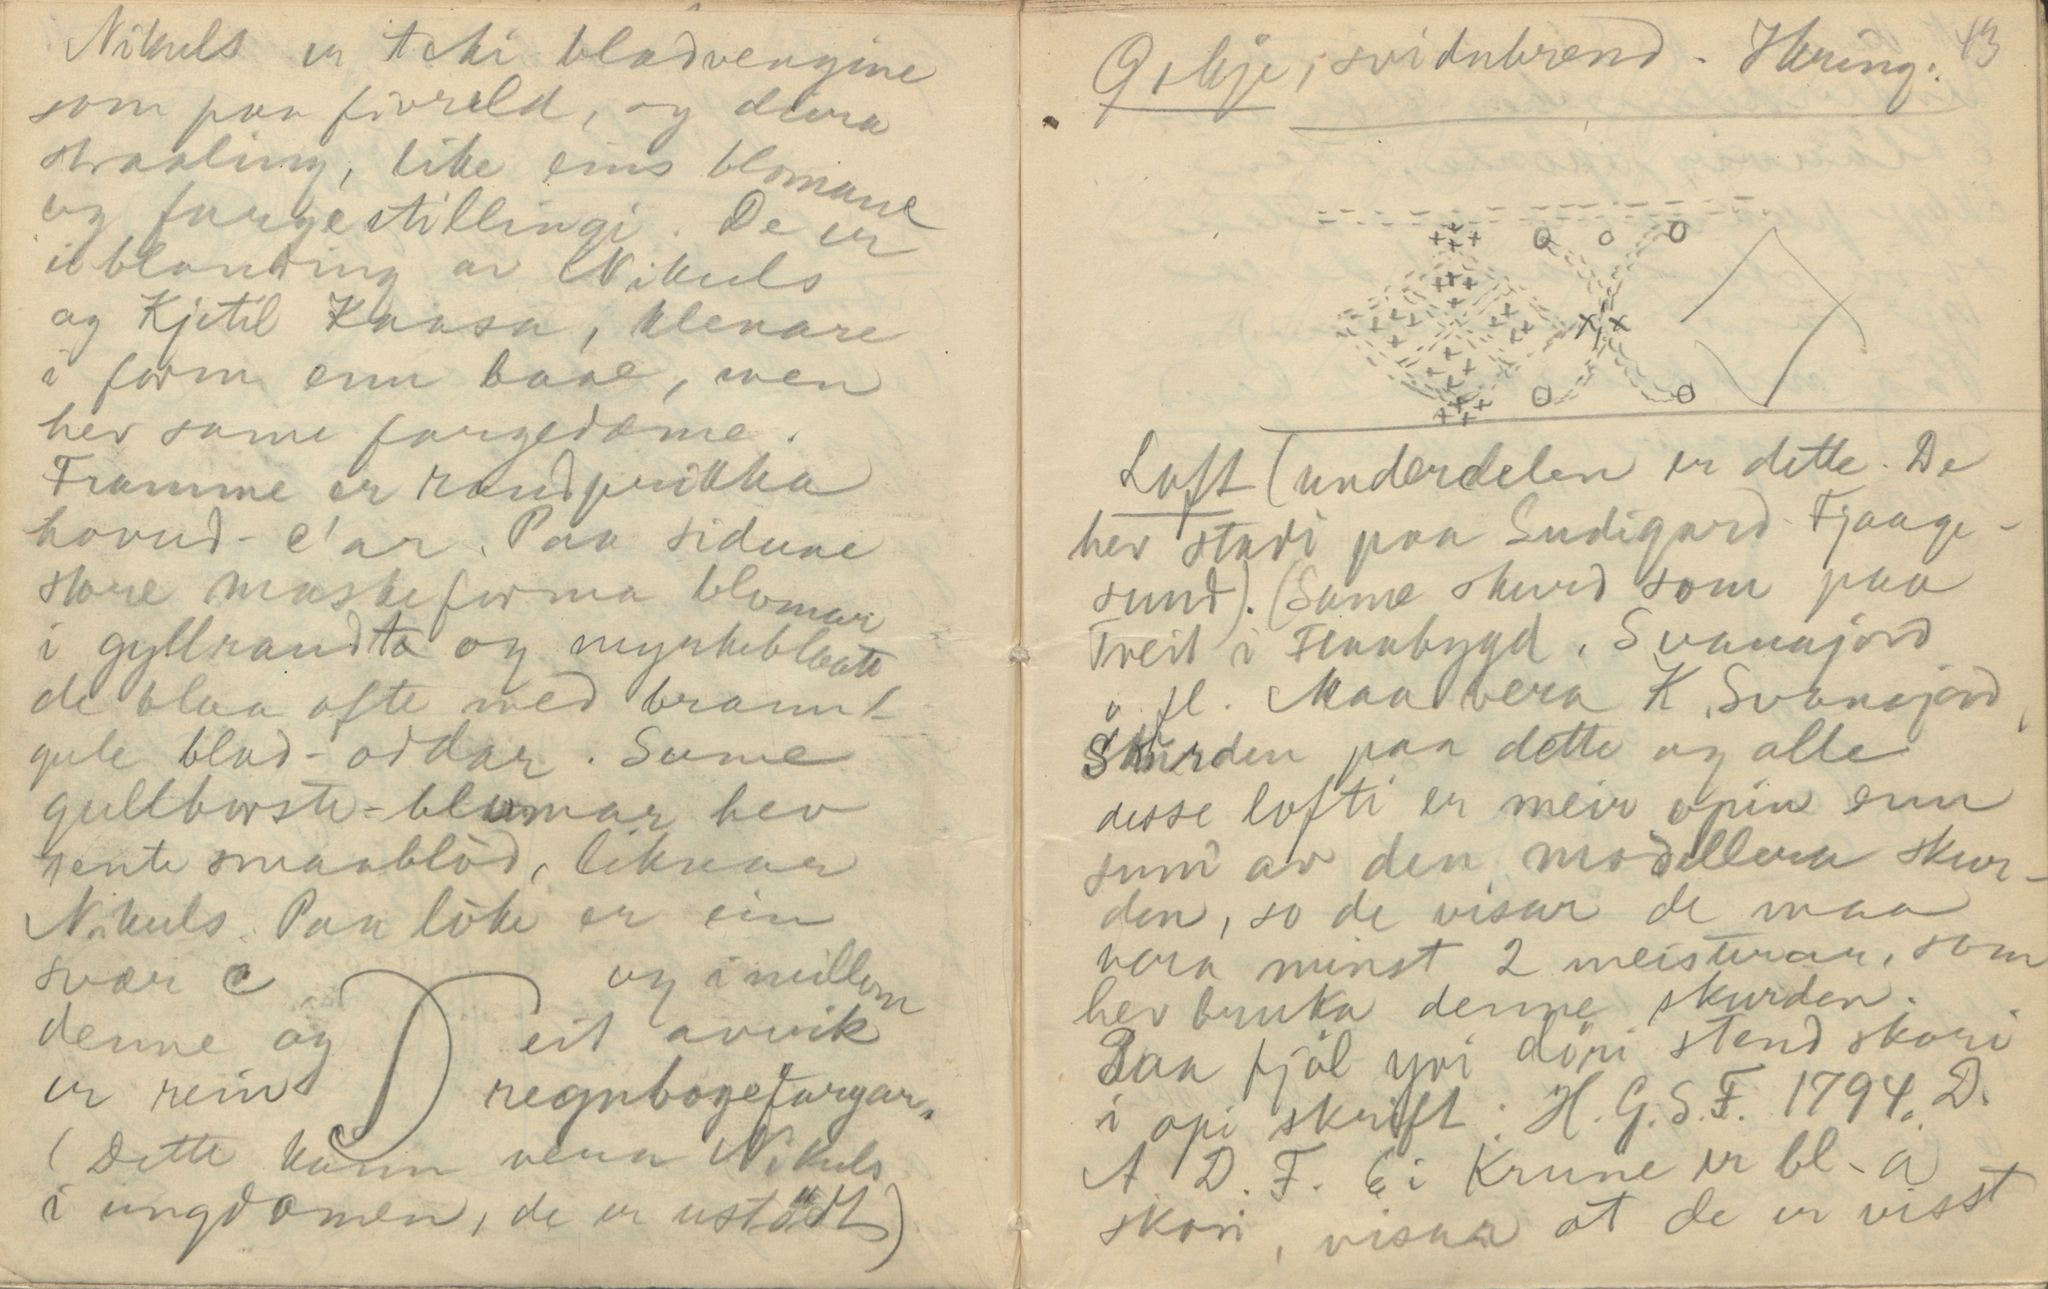 Nikuls er ikki bladvengine
som paa fivreld, og deira
straaling, like eins blomane
og fargestillingi. De er
iblanding av Nikuls
og Kjetil Kaasa, klenare
i form enn baae, men
hev same fargedøme.
Framme er raudprikka
hovud-c'ar. Paa sidune
store maskeforma blomar
i gyllrandta og myrkeblaatt
de blaa ofte med braun-
gule blad-oddar. Sume
gullborste-blomar hev
rente smaablöd, liknar
Nikuls. Paa löke er ein
svær C og imillom
denne og eit avvik
er rein regnbogefargar.
(Dette kann vera Nikuls
i ungdomen, de er ustödt)
43
Gikje, svidubrend - Hæring.
Luft (underdelen er dette. De
hev stadi paa Sudigard Fjaage-
sund). (Same skurd som paa
Treit i Flaabygd. Svanajord
o. fl. Maa vera K. Svanajord,
Skurden paa dette og alle
desse lofti er meir opin enn
sumt av den modellera skur-
den, so de visar de maa
vera minst 2 meisterar, som
hev bruka denne skurden.
Paa fjöl yvi döri stend skori
i opi skrift: H. G. S. F. 1794. D.
A D. F. Ei Krune er bl-a
skori, visar at de er visst